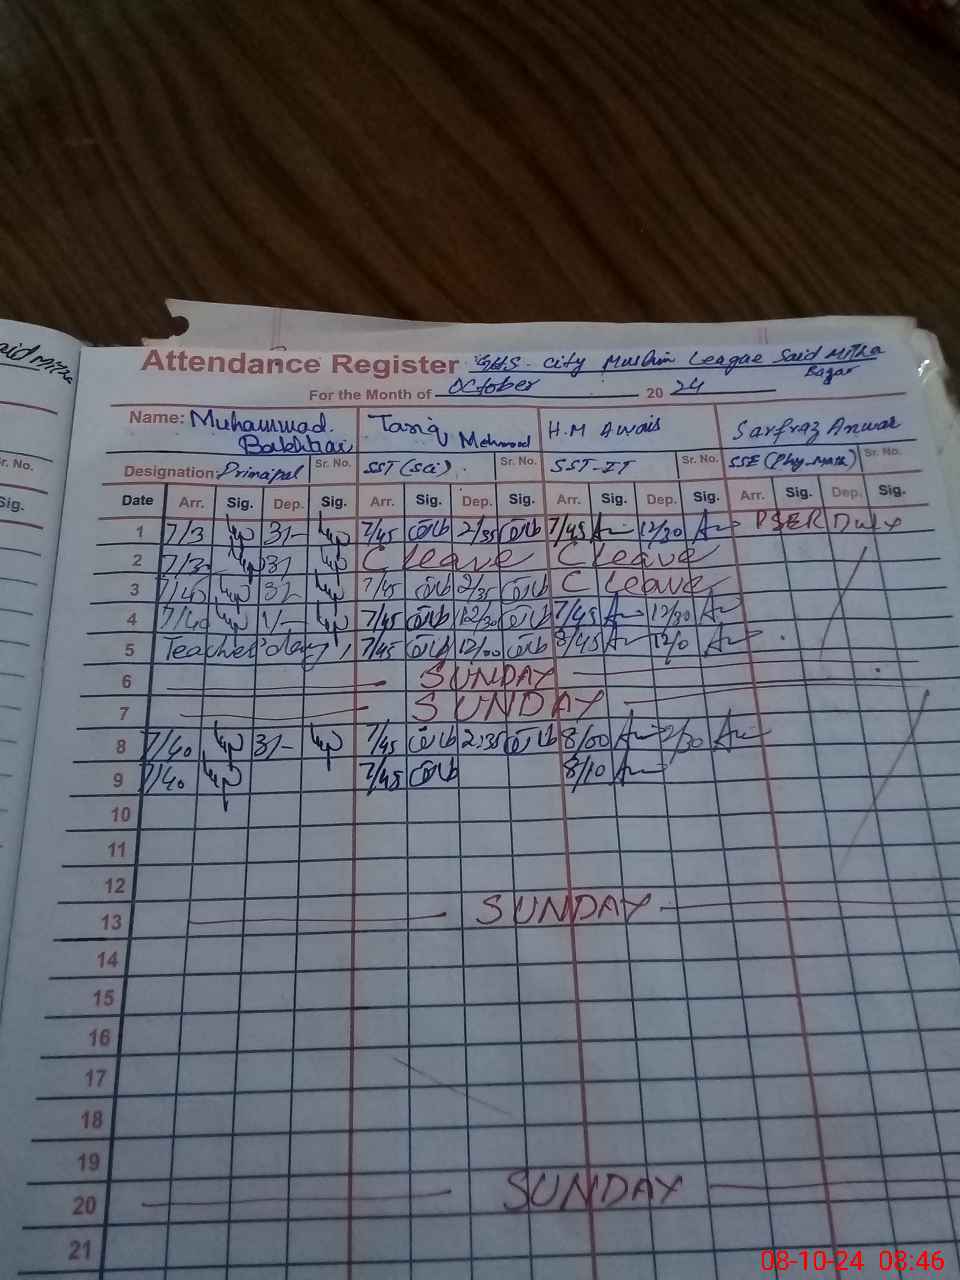 aid Mitha
Attendance Register GHS. City Muslim League Said Mitha
Bazar
For the Month of October 20 24
Name: Muhammad Tariq Mehmood H.M Awais Sarfraz Anwar
Bakhtiar
r. No. Designation: Principal Sr. No. SST (Sci). Sr. No. SST-IT Sr. No. SSE (Phy-Math) Sr. No.
Sig. Date Arr. Sig. Dep. Sig. Arr. Sig. Dep. Sig. Arr. Sig. Dep. Sig. Arr. Sig. Dep. Sig.
1 7/3 3/- 7/45 2/35 7/45 12/30 PSER Duty
2 7/3 3/ C leave C leave
3 7/40 3/- 7/45 2/35 C leave
4 7/40 1/- 7/45 12/30 7/45 12/30
5 Teacher's day 7/45 12/00 8/45 12/0
6 SUNDAY
7 SUNDAY
8 7/40 3/- 7/45 2:35 8/00 2/30
9 7/40 7/45 8/10
10
11
12
13 SUNDAY
14
15
16
17
18
19
20 SUNDAY
21
08-10-24 08:46